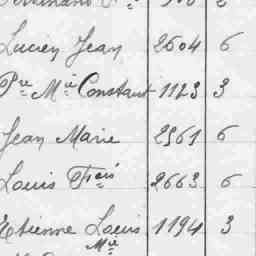 Lucien Jean 2604 6
Pre Mie Constant 1123 3
Jean Marie 2561 6
Louis Fçois 2663 6
Etienne Louis 1194 3
Mie